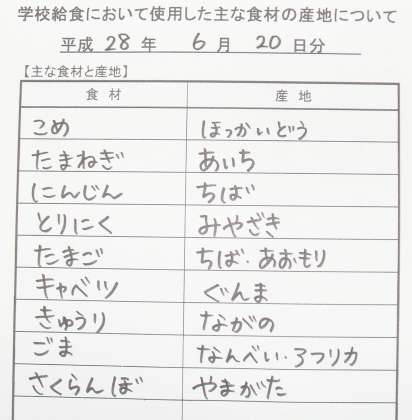 学校給食において使用した主な食材の産地について
平成 28 年 6 月 20 日分
【主な食材と産地】
食 材 産 地
こめ ほっかいどう
たまねぎ あいち
にんじん ちば
とりにく みやざき
たまご ちば・あおもり
キャベツ ぐんま
きゅうり ながの
ごま なんべい・アフリカ
さくらんぼ やまがた